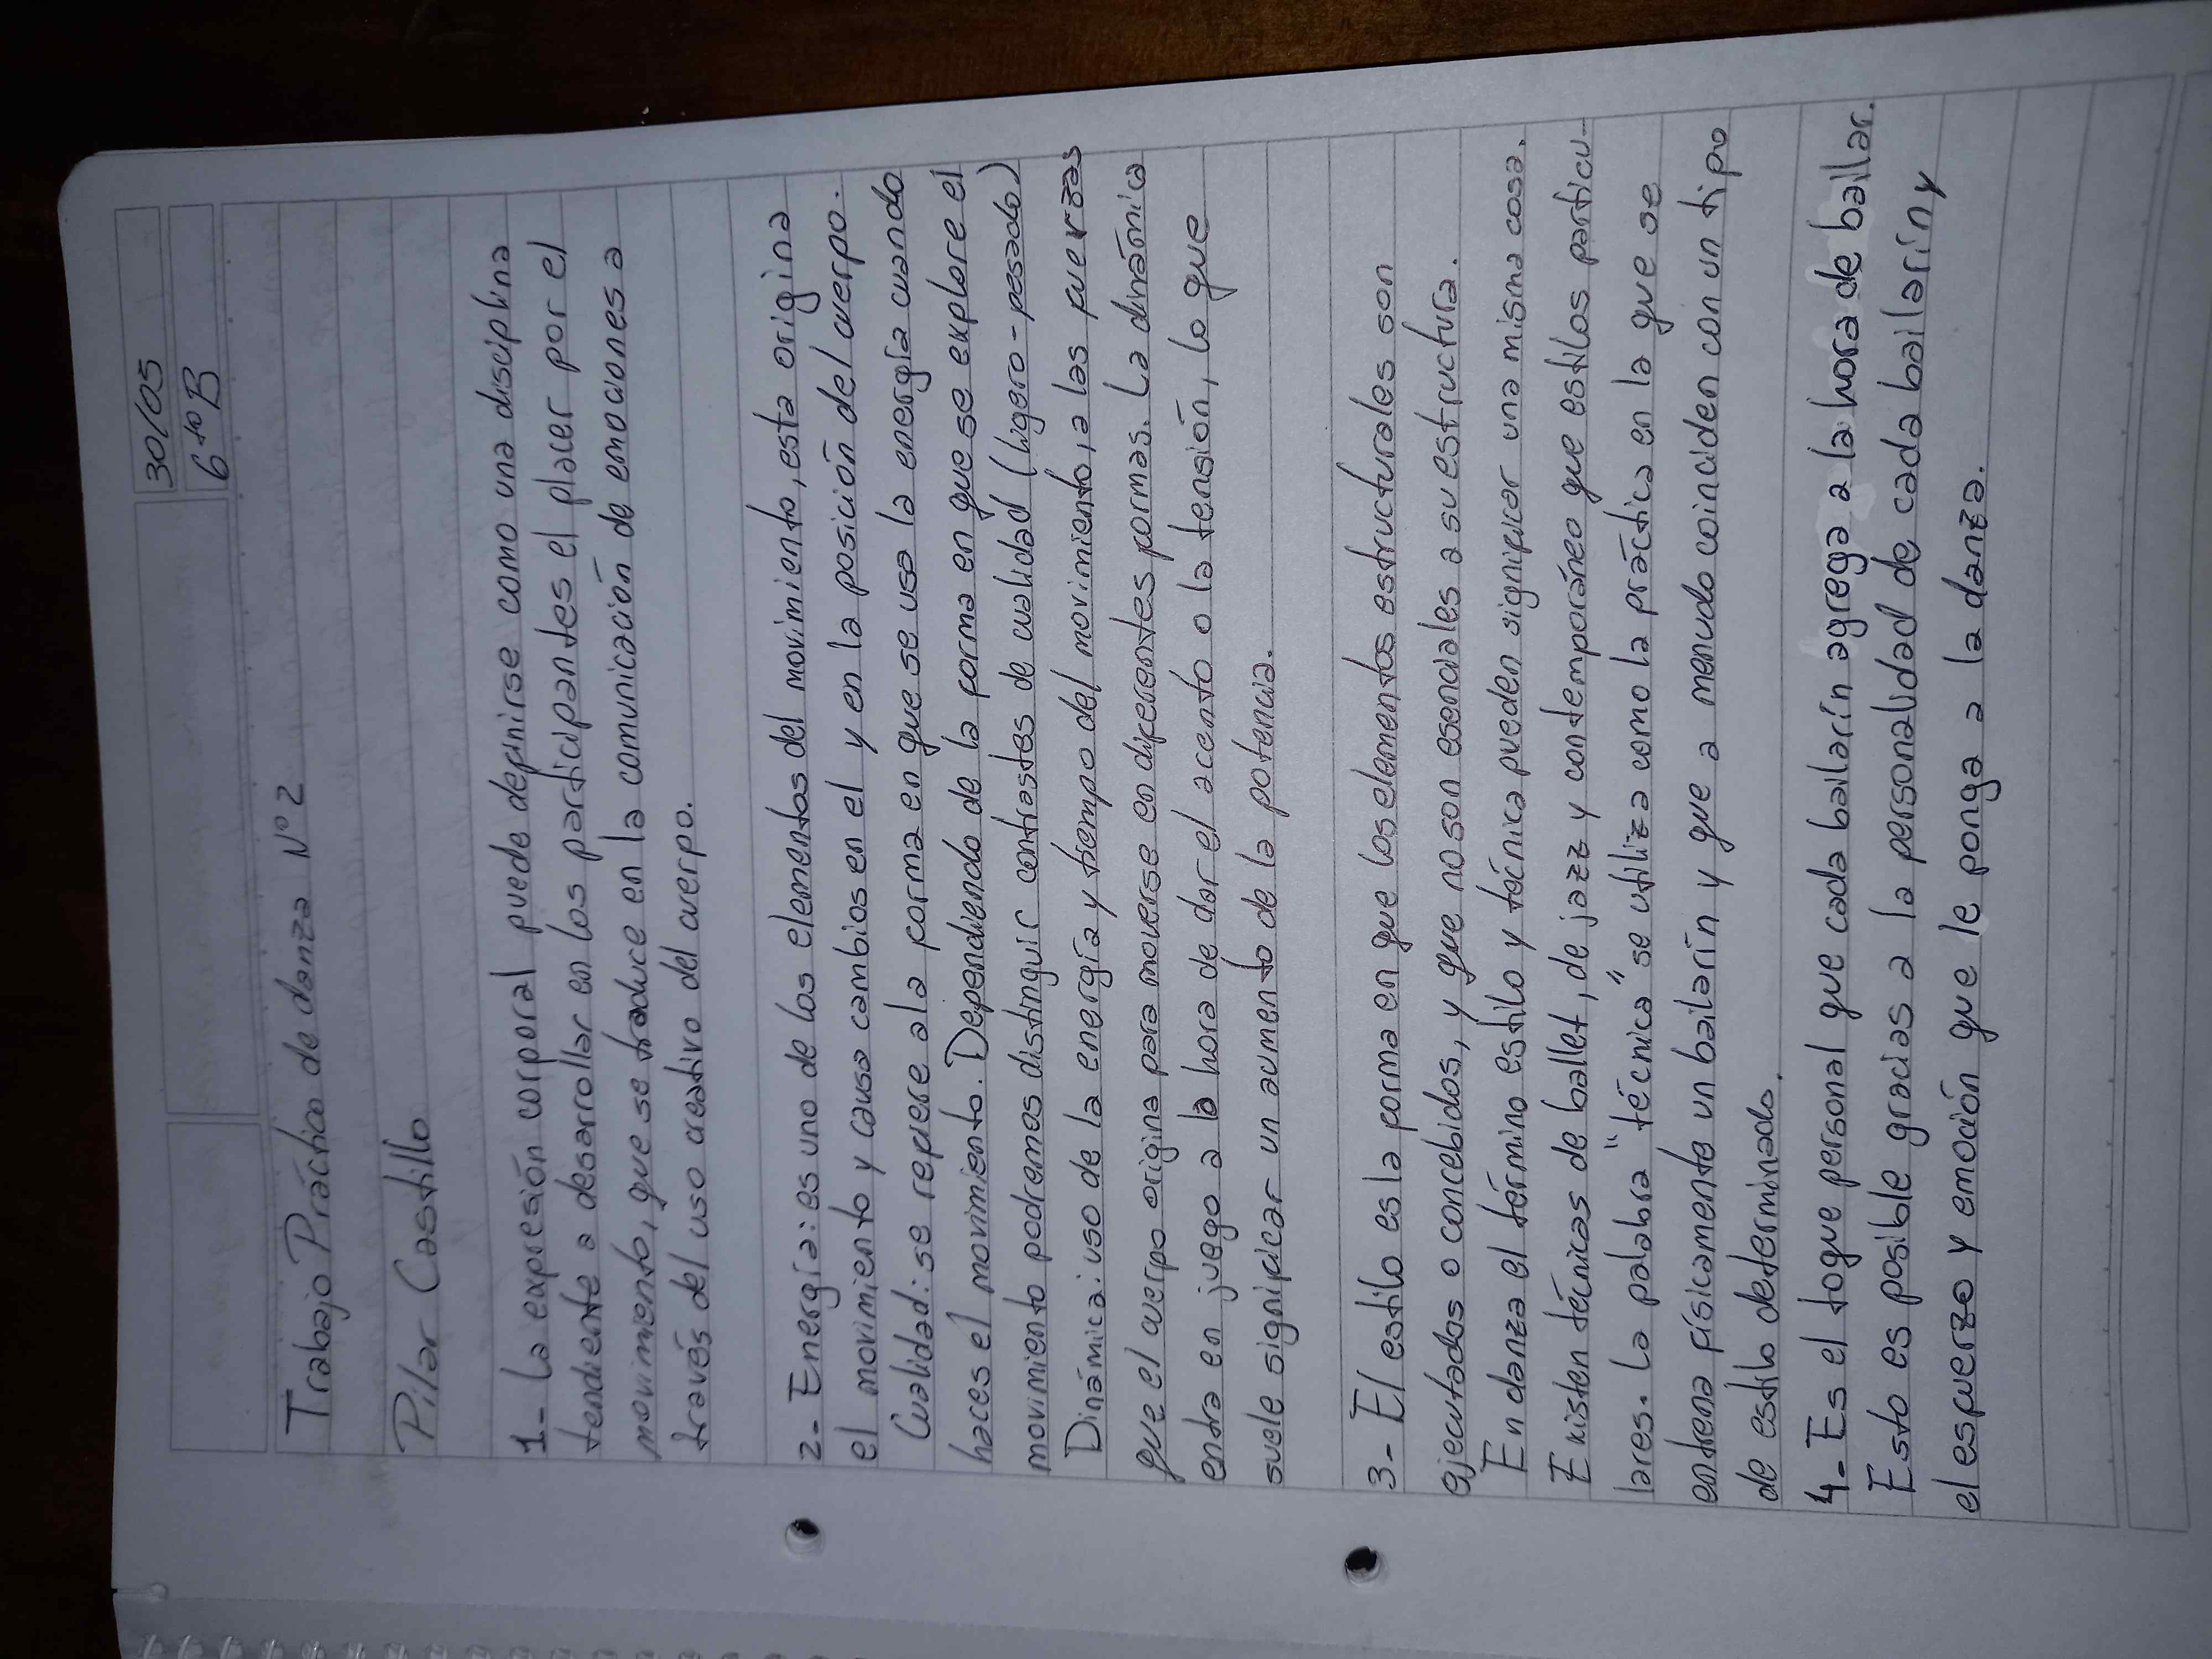 30/05
6to B
Trabajo Práctico de danza N°2
Pilar Castillo
1- La expresión corporal puede definirse como una disciplina
tendiente a desarrollar en los participantes el placer por el
movimiento, que se traduce en la comunicación de emociones a
través del uso creativo del cuerpo.
2- Energía: es uno de los elementos del movimiento, esta origina
el movimiento y causa cambios en el y en la posición del cuerpo.
Cualidad: se refiere a la forma en que se usa la energía cuando
haces el movimiento. Dependiendo de la forma en que se explore el
movimiento podremos distinguir contrastes de cualidad (ligero-pesado)
Dinámica: uso de la energía y tiempo del movimiento, a las fuerzas
que el cuerpo origina para moverse en diferentes formas. La dinámica
entra en juego a la hora de dar el acento o la tensión, lo que
suele significar un aumento de la potencia.
3- El estilo es la forma en que los elementos estructurales son
ejecutados o concebidos, y que no son esenciales a su estructura.
En danza el término estilo y técnica pueden significar una misma cosa.
Existen técnicas de ballet, de jazz y contemporáneo que estilos particu-
lares. La palabra "técnica" se utiliza como la práctica en la que se
entrena físicamente un bailarín y que a menudo coinciden con un tipo
de estilo determinado.
4- Es el toque personal que cada bailarín agrega a la hora de bailar.
Esto es posible gracias a la personalidad de cada bailarín y
el esfuerzo y emoción que le ponga a la danza.